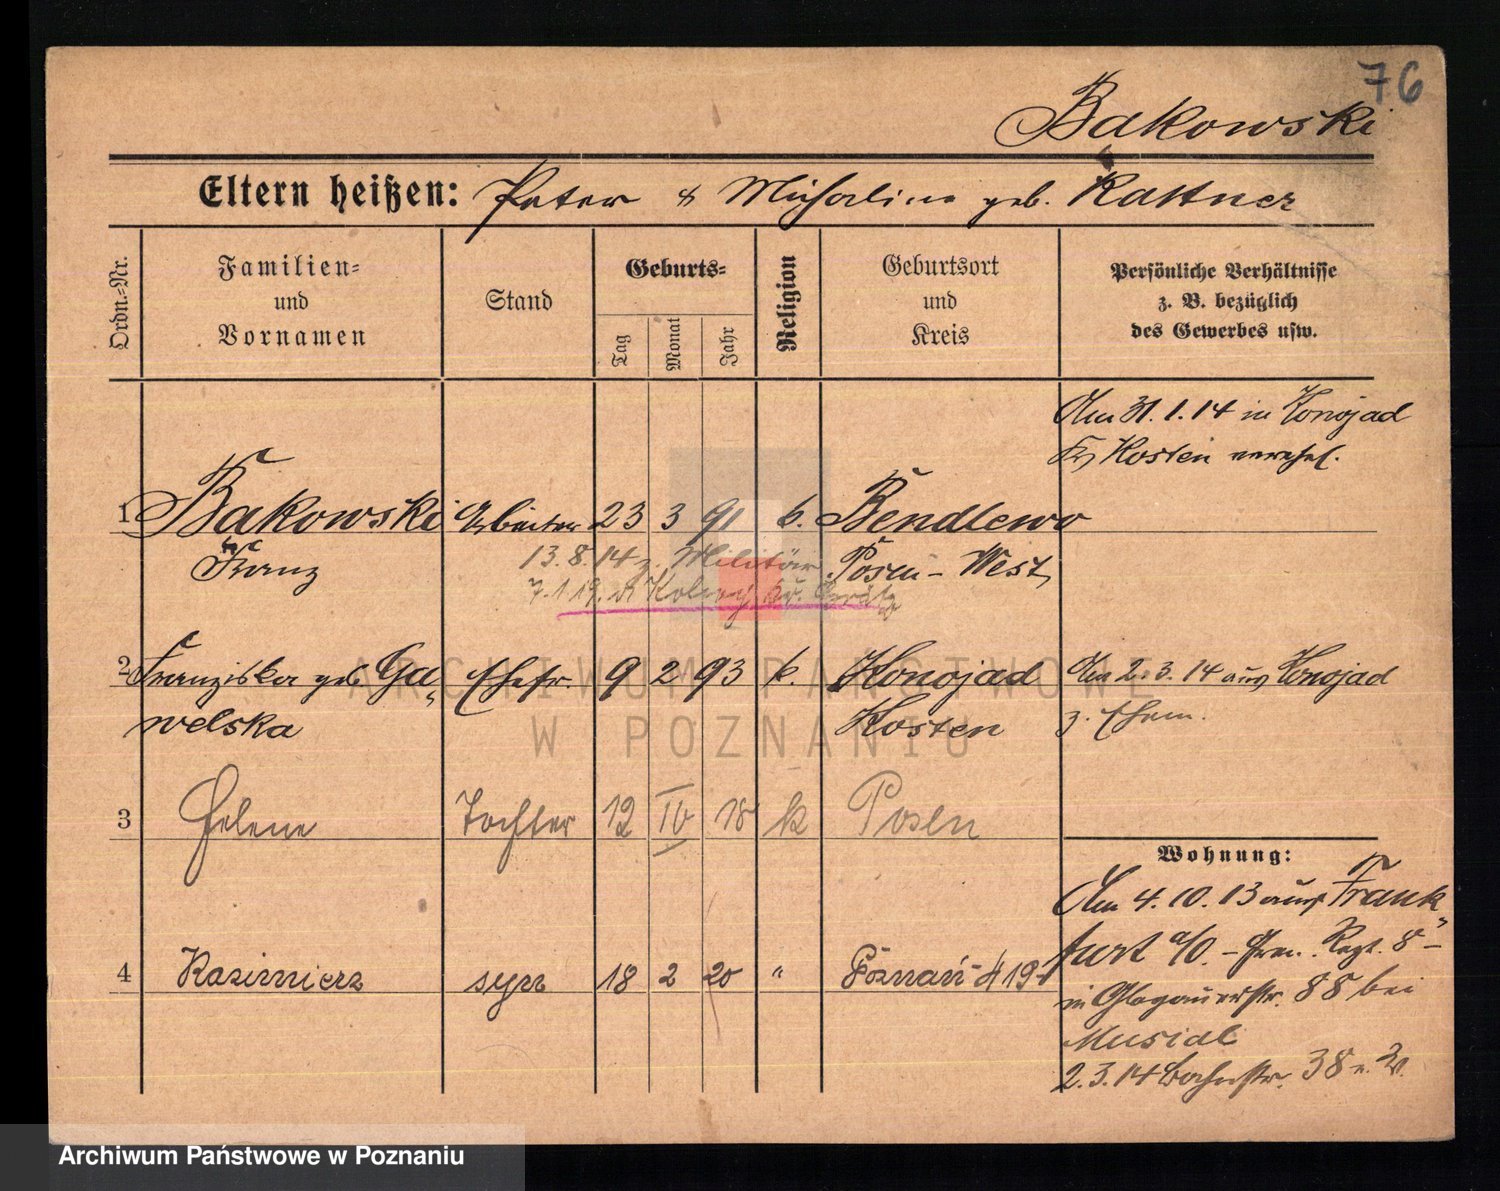 76
Bakowski
Eltern heißen: Peter & Michalina geb. Kattner
Ordn.-Nr.
Familien-
und
Vornamen
Stand
Geburts-
Tag
Monat
Jahr
Religion
Geburtsort
und
Kreis
Persönliche Verhältnisse
z. B. bezüglich
des Gewerbes usw.
Am 31.1.14 in Konojad
Kr Kosten verehel.
1 Bakowski Arbeiter 23 3 91 k. Bendlewo
Franz
13.8.14 z. Militär Posen-West
7.1.19.
2 Franziska geb Ga-
welska
Ehefr. 9 2 93 k. Konojad
Kosten
Am 2.3.14 aus Konojad
z. Ehem.
3 Helene Tochter 12 IV 18 k Posen
Wohnung:
Am 4.10.13 aus Frank-
furt a/O. - Gren. Regt. 8 -
in Glogauerstr. 88 bei
Musial
2.3.14 Bachstr. 38
4 Kazimierz syn 18 2 20 " Poznań
ARCHIWUM PAŃSTWOWE
W POZNANIU
Archiwum Państwowe w Poznaniu